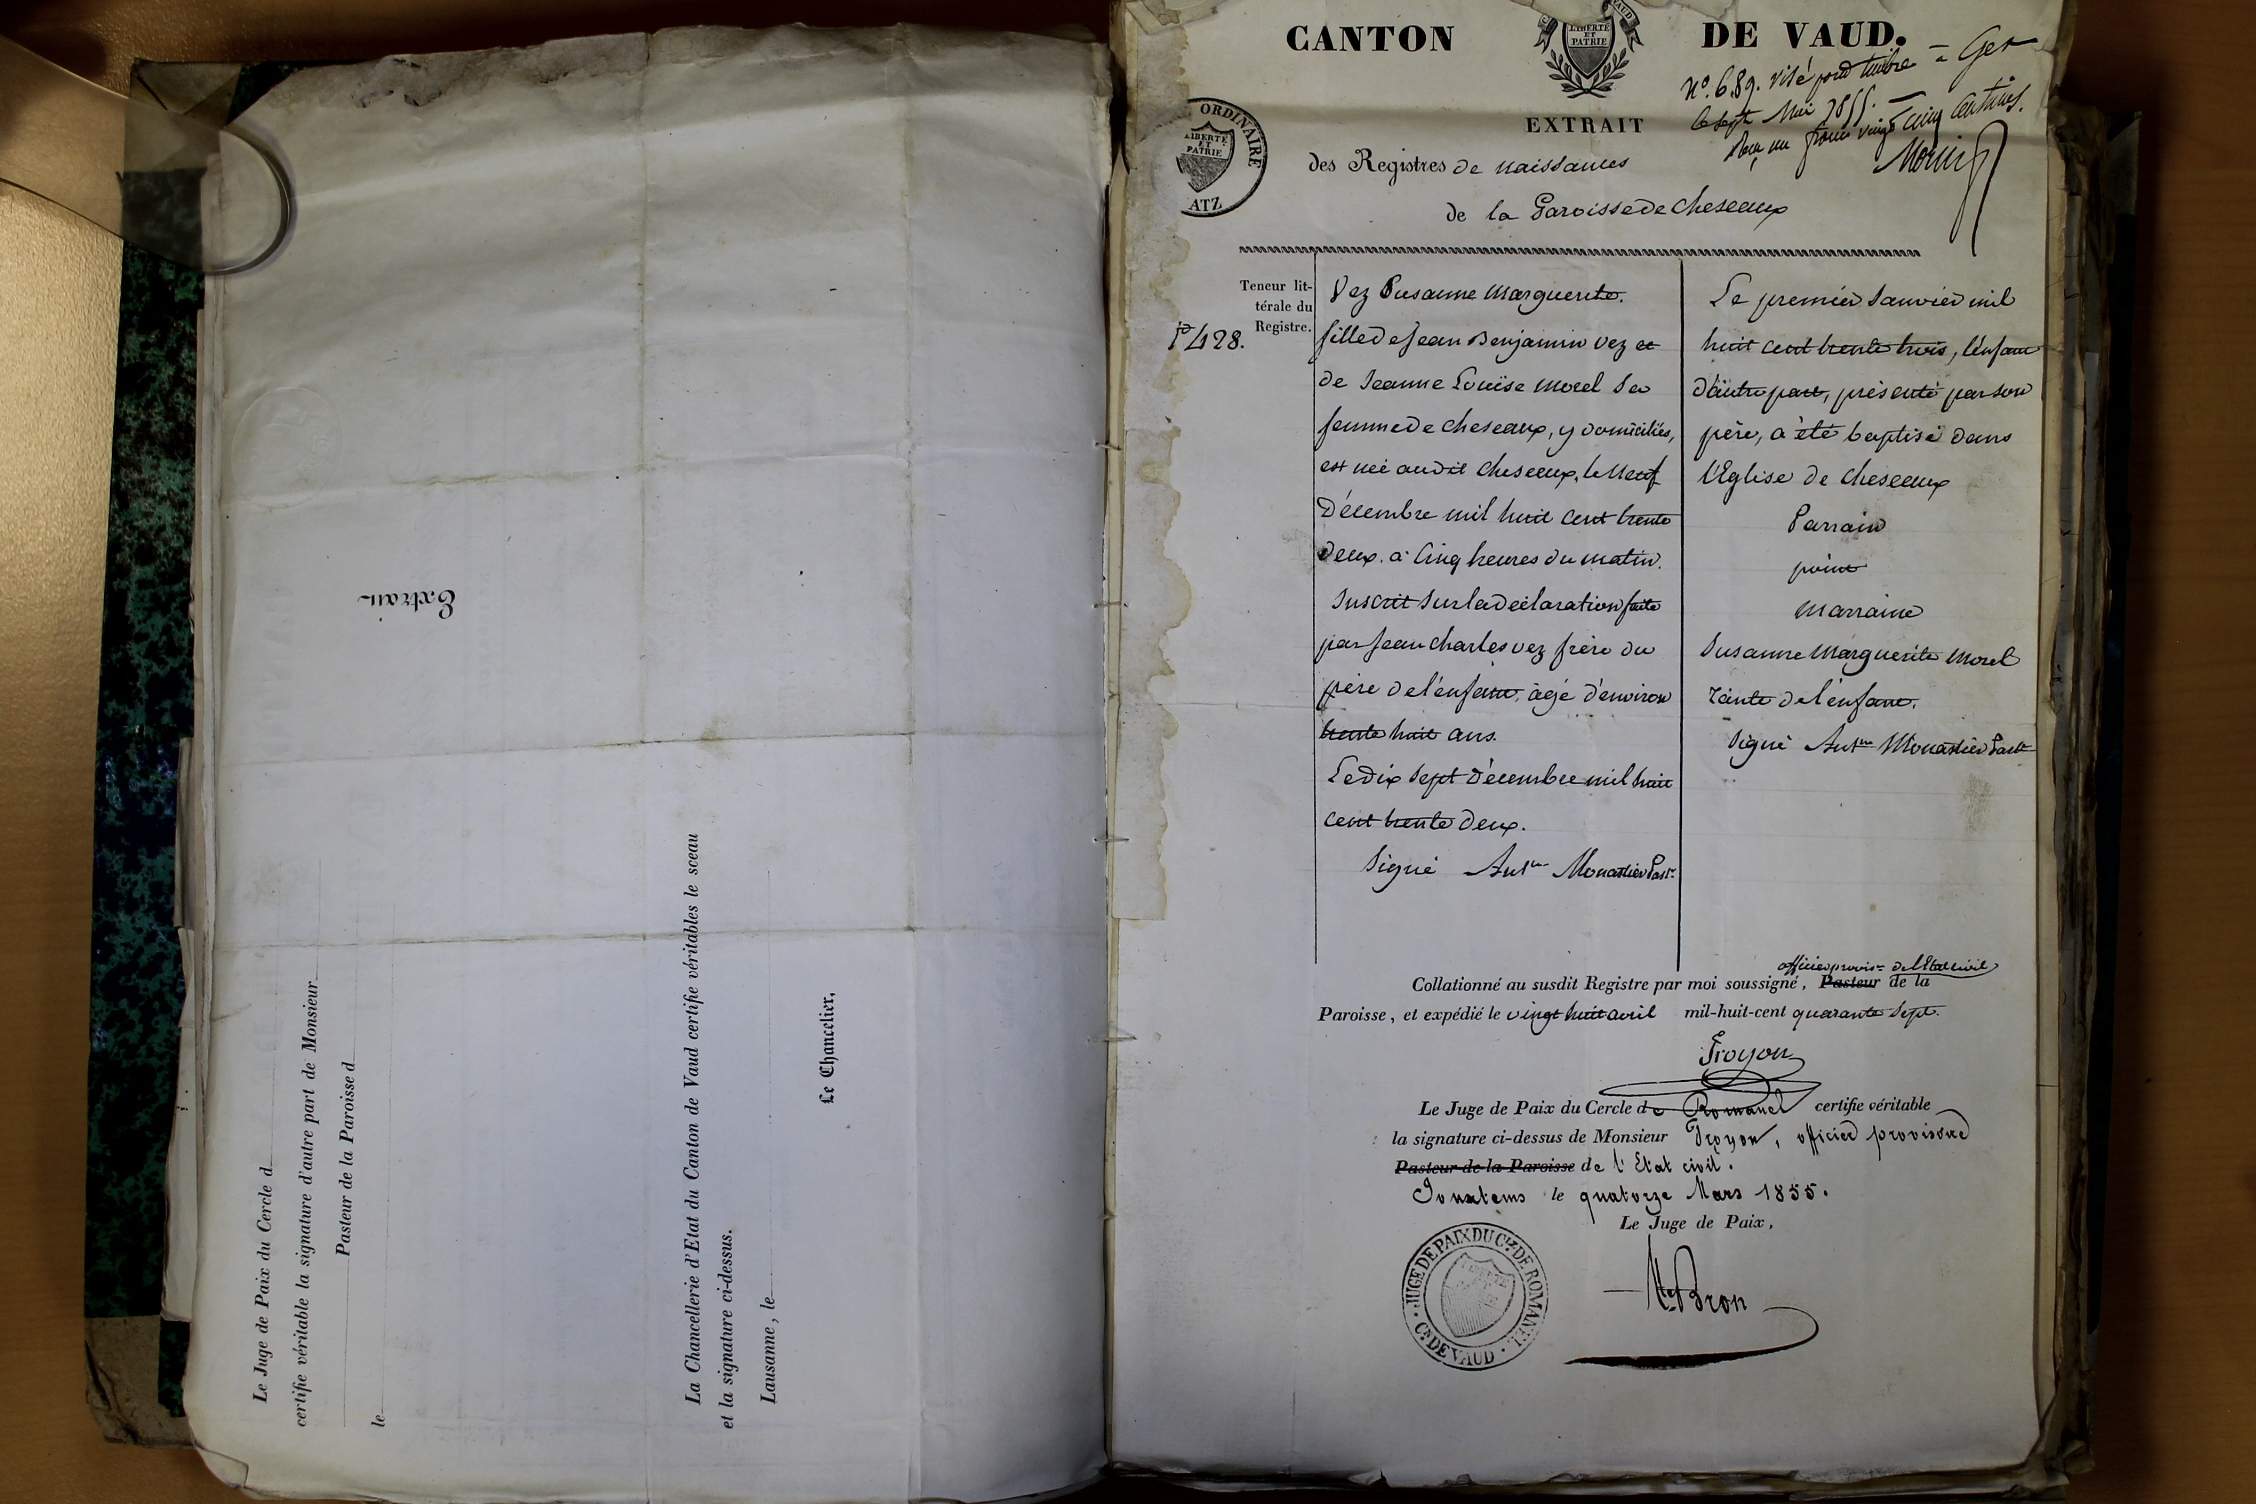 Extrait
Le Juge de Paix du Cercle d
certifie véritable la signature d'autre part de Monsieur
Pasteur de la Paroisse d
le
La Chancellerie d'Etat du Canton de Vaud certifie véritables le sceau
et la signature ci-dessus.
Lausanne, le
Le Chancelier,
CANTON DE VAUD.
LIBERTÉ
ET
PATRIE
N.° 689. visé pour timbre à Gex
le sept Mai 1855.
Reçu un franc vingt cinq centimes.
ORDINAIRE
LIBERTÉ
ET
PATRIE
ATZ
EXTRAIT
des Registres de naissances
de la Paroisse de Cheseaux
Teneur lit-
térale du
Registre.
f° 428.
Vez Susanne Marguerite.
fille de Jean Benjamin Vez et
de Jeanne Louïse Morel sa
femme de Cheseaux, y domiciliés,
est née audit Cheseaux, le Neuf
Décembre mil huit cent trente
deux. à Cinq heures du matin.
Inscrit sur la déclaration faite
par Jean Charles Vez frère du
père de l'enfant, âgé d'environ
trente huit ans.
Le dix sept Décembre mil huit
cent trente deux.
Signé Ant.ne Monastier Past.r
Le premier Janvier mil
huit cent trente trois, l'enfant
d'autre part, présenté par son
père, a été baptisé dans
l'Eglise de Cheseaux
Parrain
point
Marraine
Susanne Marguerite Morel
tante de l'enfant.
Signé Ant.ne Monastier Past.r
officier provis.re de l'Etat civil
Collationné au susdit Registre par moi soussigné, Pasteur de la
Paroisse, et expédié le vingt huit avril mil-huit-cent quarante sept.
Troyon
Le Juge de Paix du Cercle de Romanel certifie véritable
la signature ci-dessus de Monsieur Troyon, officier provisoire
Pasteur de la Paroisse de l'Etat civil.
Jouxtems le quatorze Mars 1855.
Le Juge de Paix,
JUGE DE PAIX DU C.le DE ROMANEL
C.N DE VAUD
Bron